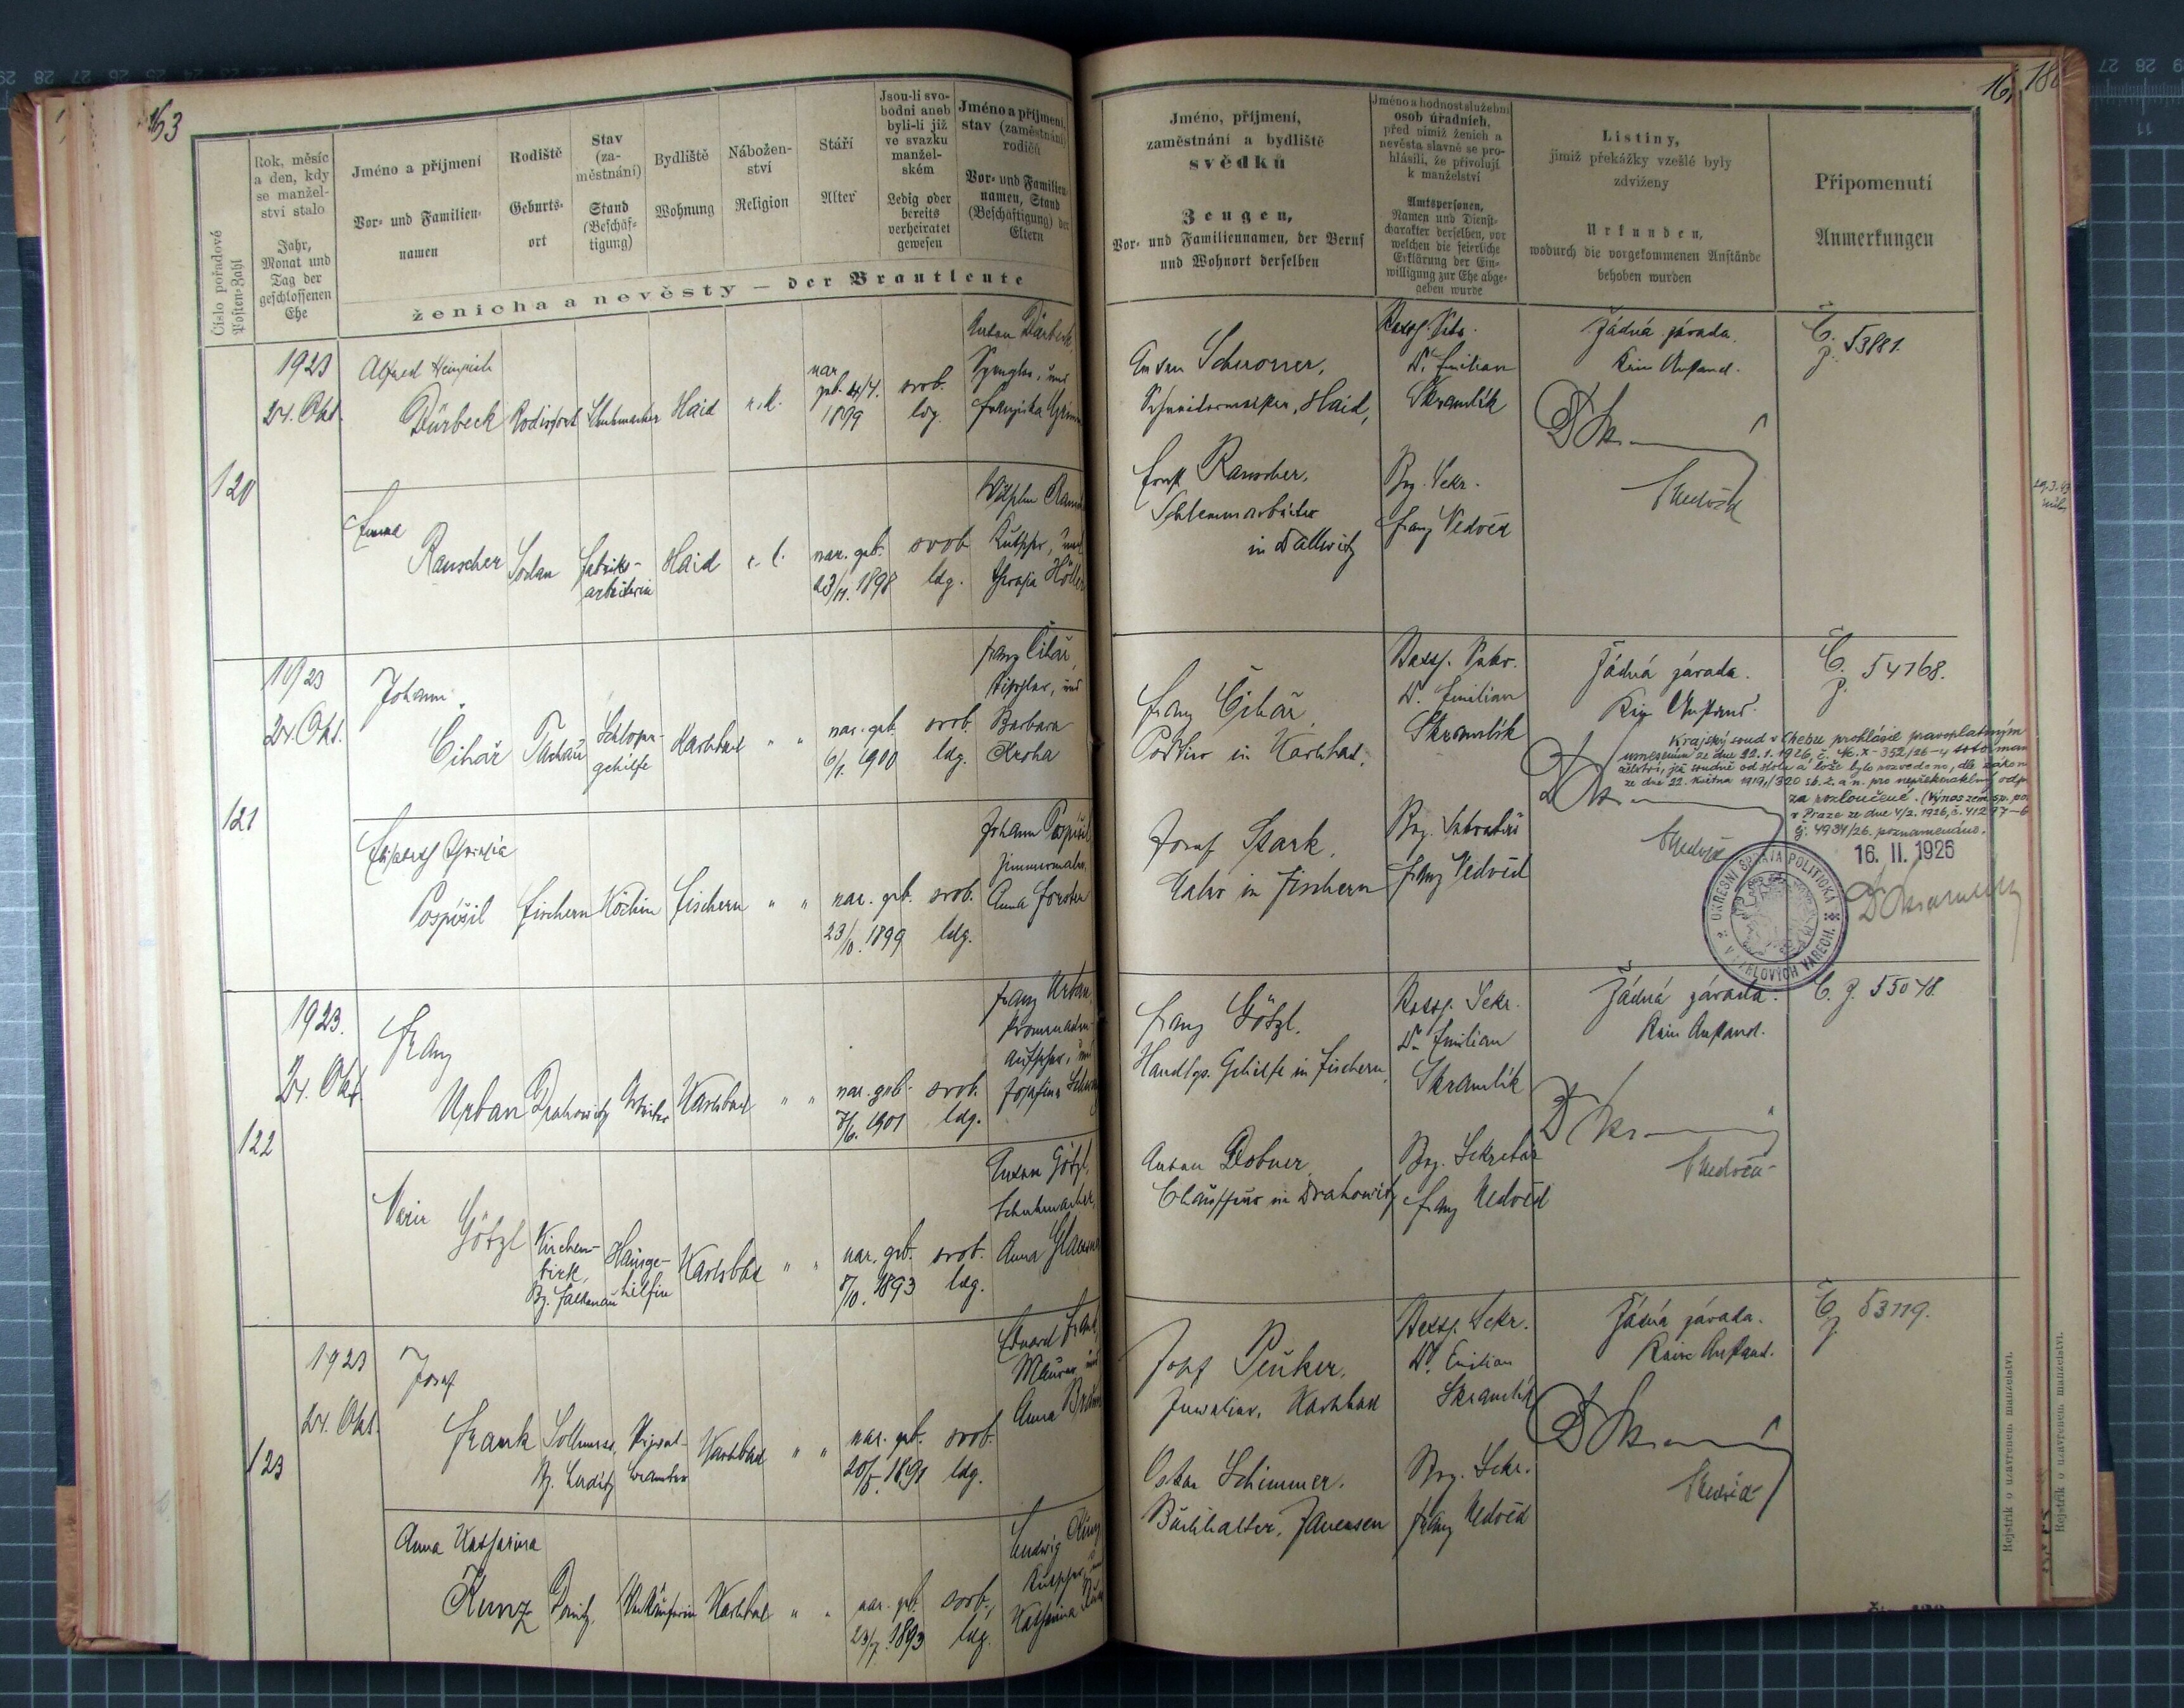 163
Číslo pořadové
Posten-Zahl
Rok, měsíc
a den, kdy
se manžel-
ství stalo
Jahr,
Monat und
Tag der
geschlossenen
Ehe
Jméno a příjmení
Vor- und Familien-
namen
Rodiště
Geburts-
ort
Stav
(za-
městnání)
Stand
(Beschäf-
tigung)
Bydliště
Wohnung
Nábožen-
ství
Religion
Stáří
Alter
Jsou-li svo-
bodni aneb
byli-li již
ve svazku
manžel-
ském
Ledig oder
bereits
verheiratet
gewesen
Jméno a příjmení,
stav (zaměstnání)
rodičů
Vor- und Familien-
namen, Stand
(Beschäftigung) der
Eltern
ženicha a nevěsty — der Brautleute
120
1923
24. Okt.
Alfred Heinrich
Dürbeck
Rodisfort
Schuhmacher
Haid
r. k.
nar.
geb.
1899
svob.
ldg.
Anton Dürbeck,
Spengler, und
Franziska
Emma
Rauscher
Sodau
Fabriks-
arbeiterin
Haid
nar. geb.
23/11. 1898
svob.
ldg.
Kutscher, und
Theresia
121
1923
24. Okt.
Johann
Čihař
Tachau
Schlosser-
gehilfe
Karlsbad
" "
nar. geb.
6/1. 1900
svob.
ldg.
Franz Čihař,
Tischler, und
Barbara
Kroha
Elisabeth Theresia
Pospíšil
Fischern
Köchin
Fischern
" "
nar. geb.
23/10. 1899
svob.
ldg.
Johann Pospíšil
Zimmermaler,
Anna Forster
122
1923.
24. Okt.
Franz
Urban
Drahowitz
Arbeiter
Karlsbad
" "
nar. geb.
7/6. 1901
svob.
ldg.
Franz Urban,
Promenaden-
Aufseher, und
Josefina
Marie
Götzl
Kirchen-
birk,
Bz. Falkenau
Hausge-
hilfin
Karlsbad
" "
nar. geb.
8/10. 1893
svob.
ldg.
Anton Götzl,
Schuhmacher,
Anna
123
1923
24. Okt.
Josef
Frank
Sollmus,
Bz. Luditz
Privat-
beamter
Karlsbad
" "
nar. geb.
20/5. 1891
svob.
ldg.
Eduard Frank,
Maurer, und
Anna
Anna Katharina
Kunz
Donitz,
Verkäuferin
Karlsbad
" "
nar. geb.
23/7. 1893
svob.,
ldg.
Ludwig Kunz
Kutscher, und
Katharina
Jméno, příjmení,
zaměstnání a bydliště
svědků
Zeugen,
Vor- und Familiennamen, der Beruf
und Wohnort derselben
Jméno a hodnost služební
osob úředních,
před nimiž ženich a
nevěsta slavně se pro-
hlásili, že přivolují
k manželství
Amtspersonen,
Namen und Dienst-
charakter derselben, vor
welchen die feierliche
Erklärung der Ein-
willigung zur Ehe abge-
geben wurde
Listiny,
jimiž překážky vzešlé byly
zdviženy
Urkunden,
wodurch die vorgekommenen Anstände
behoben wurden
Připomenutí
Anmerkungen
Anton
Schneidermeister, Haid,
Ernst Rauscher,
Schlemmarbeiter
in Dallwitz
Dr. Emilian
Skramlík
Bez. Sekr.
Franz Nedvěd
Žádná závada.
Kein Anstand.
Č.
j. 53881.
Franz Čihař,
Portier in Karlsbad.
Josef Stark,
Maler in Fischern
Dr. Emilian
Skramlík
Bez. Sekretär
Franz Nedvěd
Žádná závada.
Kein Anstand.
Č.
j. 54768.
Krajský soud v Chebu prohlásil pravoplatným
usnesením ze dne 22. 1. 1926, č.
želství, jež soudně od stolu a lože bylo rozvedeno, dle zákona
ze dne 22. května 1919, /320 sb. z. a n. pro nepřekonatelný odpor
za rozloučené. (Výnos zem. sp. pol.
v Praze ze dne 4/2. 1926, č. 41297-6
čj. 4934/26. poznamenáno.
16. II. 1926
OKRESNÍ SPRÁVA POLITICKÁ
V KARLOVÝCH VARECH.
Franz Götzl,
Handlgs. Gehilfe in Fischern,
Anton Dobner,
Chauffeur in Drahowitz
Dr. Emilian
Skramlík
Bez. Sekretär
Franz Nedvěd
Žádná závada.
Kein Anstand.
Č. j. 55048.
Josef Peuker,
Juwelier, Karlsbad
Oskar Schimmer,
Buchhalter, Janessen
Dr. Emilian
Skramlík
Bez. Sekr.
Franz Nedvěd
Žádná závada.
Kein Anstand.
Č.
j. 53119.
Rejstřík o uzavřeném manželství.
Rejstřík o uzavřeném manželství.